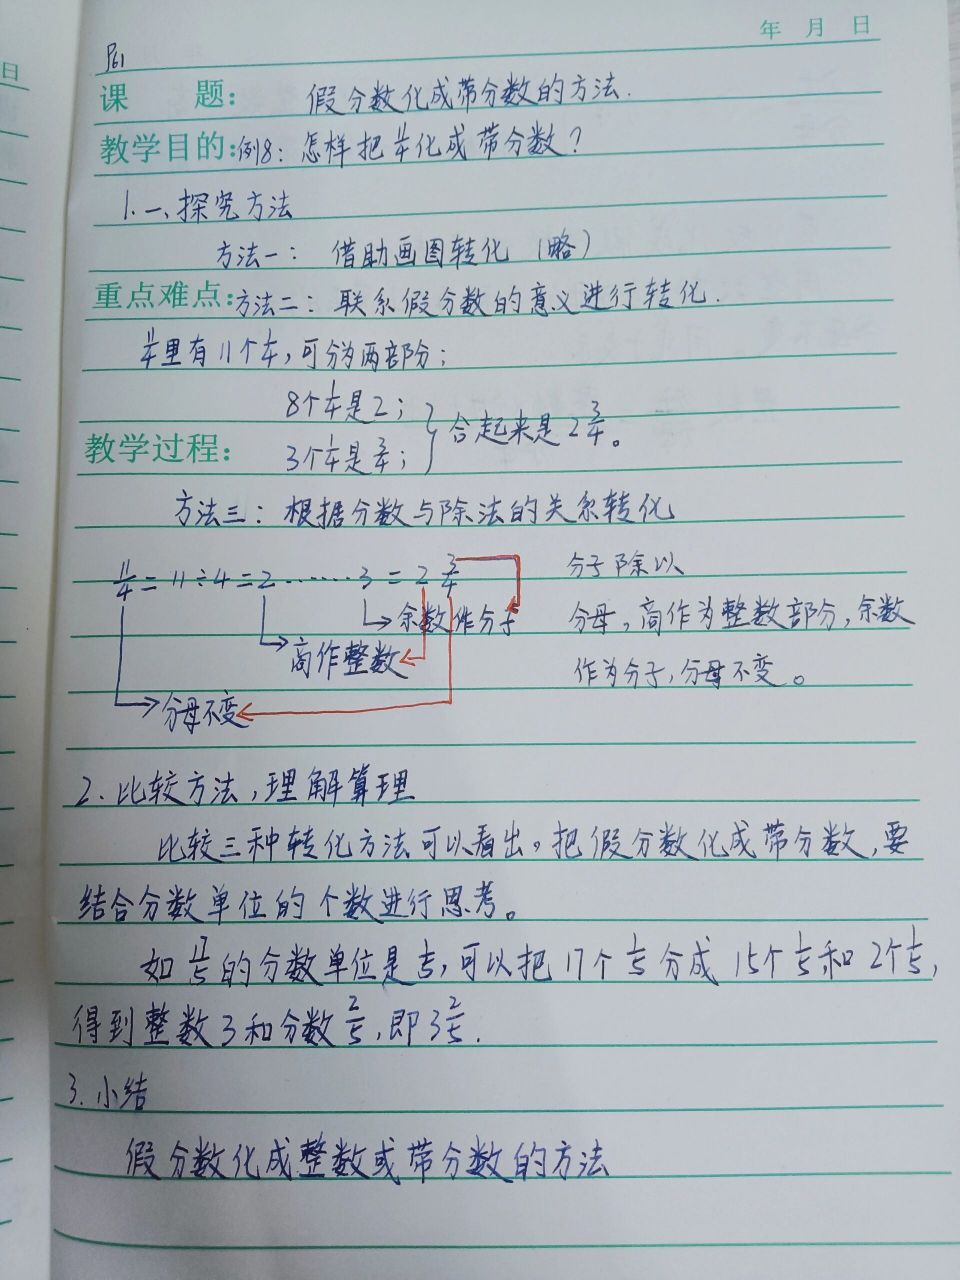 年 月 日
日
P61
课 题： 假分数化成带分数的方法.
教学目的：例8：怎样把11/4化成带分数？
1.一、探究方法
方法一： 借助画图转化（略）
重点难点：方法二：联系假分数的意义进行转化.
11/4里有11个1/4，可分为两部分；
8个1/4是2；
} 合起来是2 3/4。
教学过程： 3个1/4是3/4；
方法三：根据分数与除法的关系转化
11/4 = 11÷4 = 2 …… 3 = 2 3/4
分子除以
余数作分子
分母，商作为整数部分，余数
商作整数
作为分子，分母不变。
分母不变
2.比较方法，理解算理
比较三种转化方法可以看出。把假分数化成带分数，要
结合分数单位的个数进行思考。
如17/5的分数单位是1/5，可以把17个1/5分成15个1/5和2个1/5，
得到整数3和分数2/5，即3 2/5.
3.小结
假分数化成整数或带分数的方法